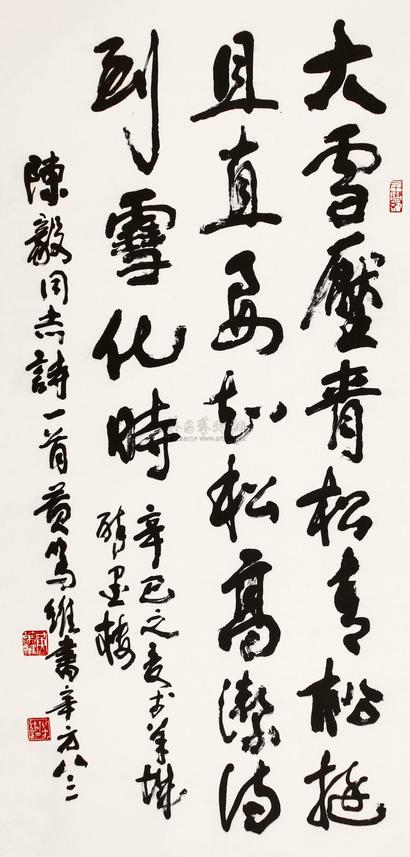 大雪壓青松青松挺
且直要知松高潔待
到雪化時
辛巳之夏於羊城
醉墨楼
陳毅同志詩一首黄篤維書年方八二